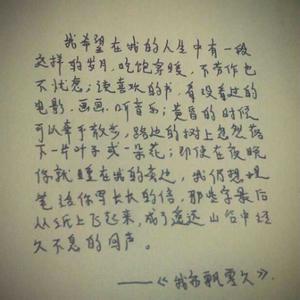 我希望在我的人生中有一段
这样的岁月，吃饱穿暖，不劳作也
不忧愁；读喜欢的书，看没看过的
电影，画画，听音乐；黄昏的时候
可以牵手散步，路边的树上忽然落
下一片叶子或一朵花；即使在夜晚
你就睡在我的旁边，我仍想提
笔给你写长长的信，那些字最后
从纸上飞起来，成了遥远山谷中经
久不息的回声。
——《我有飘零久》.